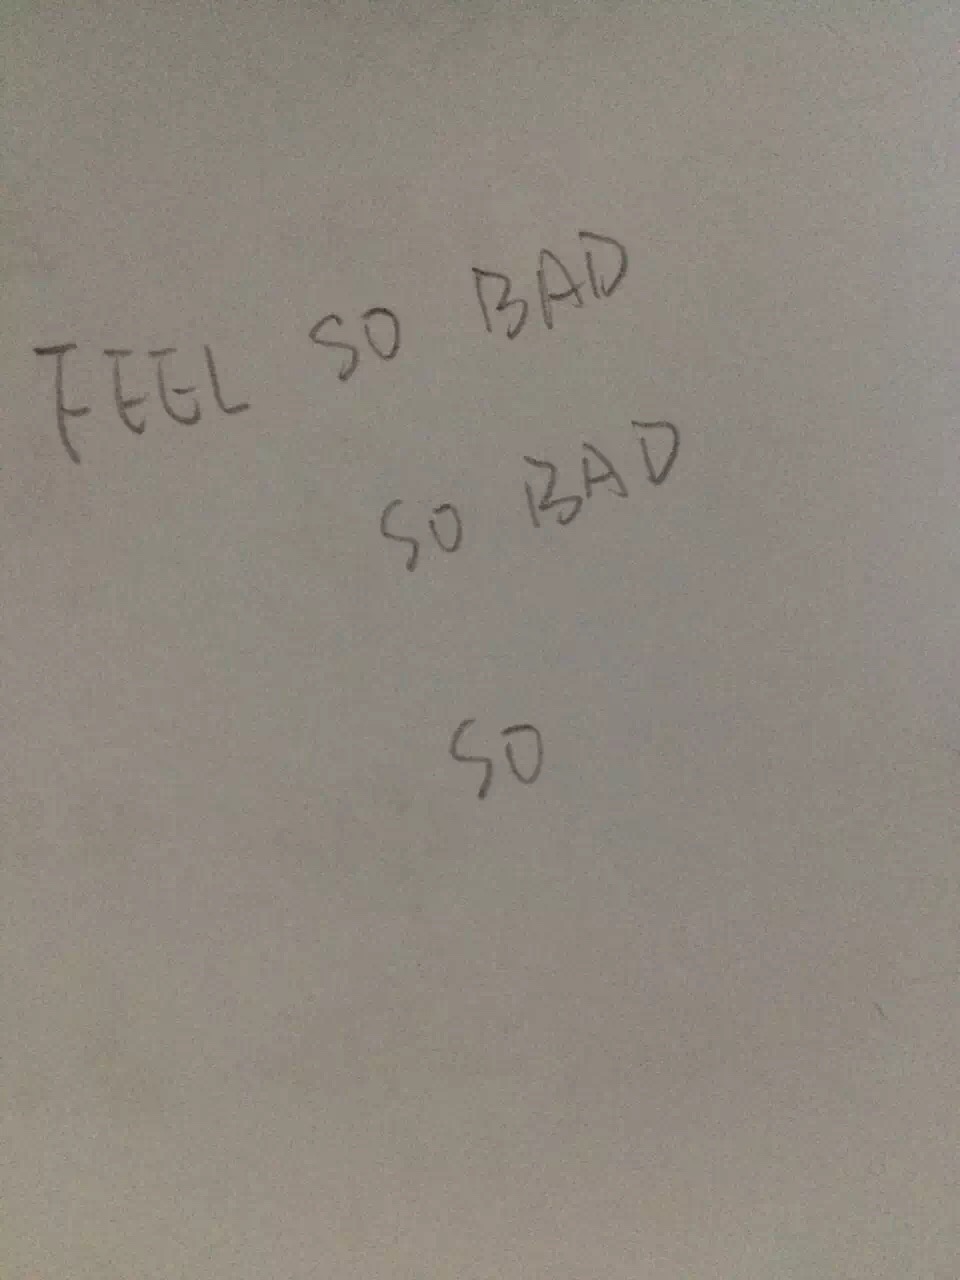 FEEL SO BAD
SO BAD
SO